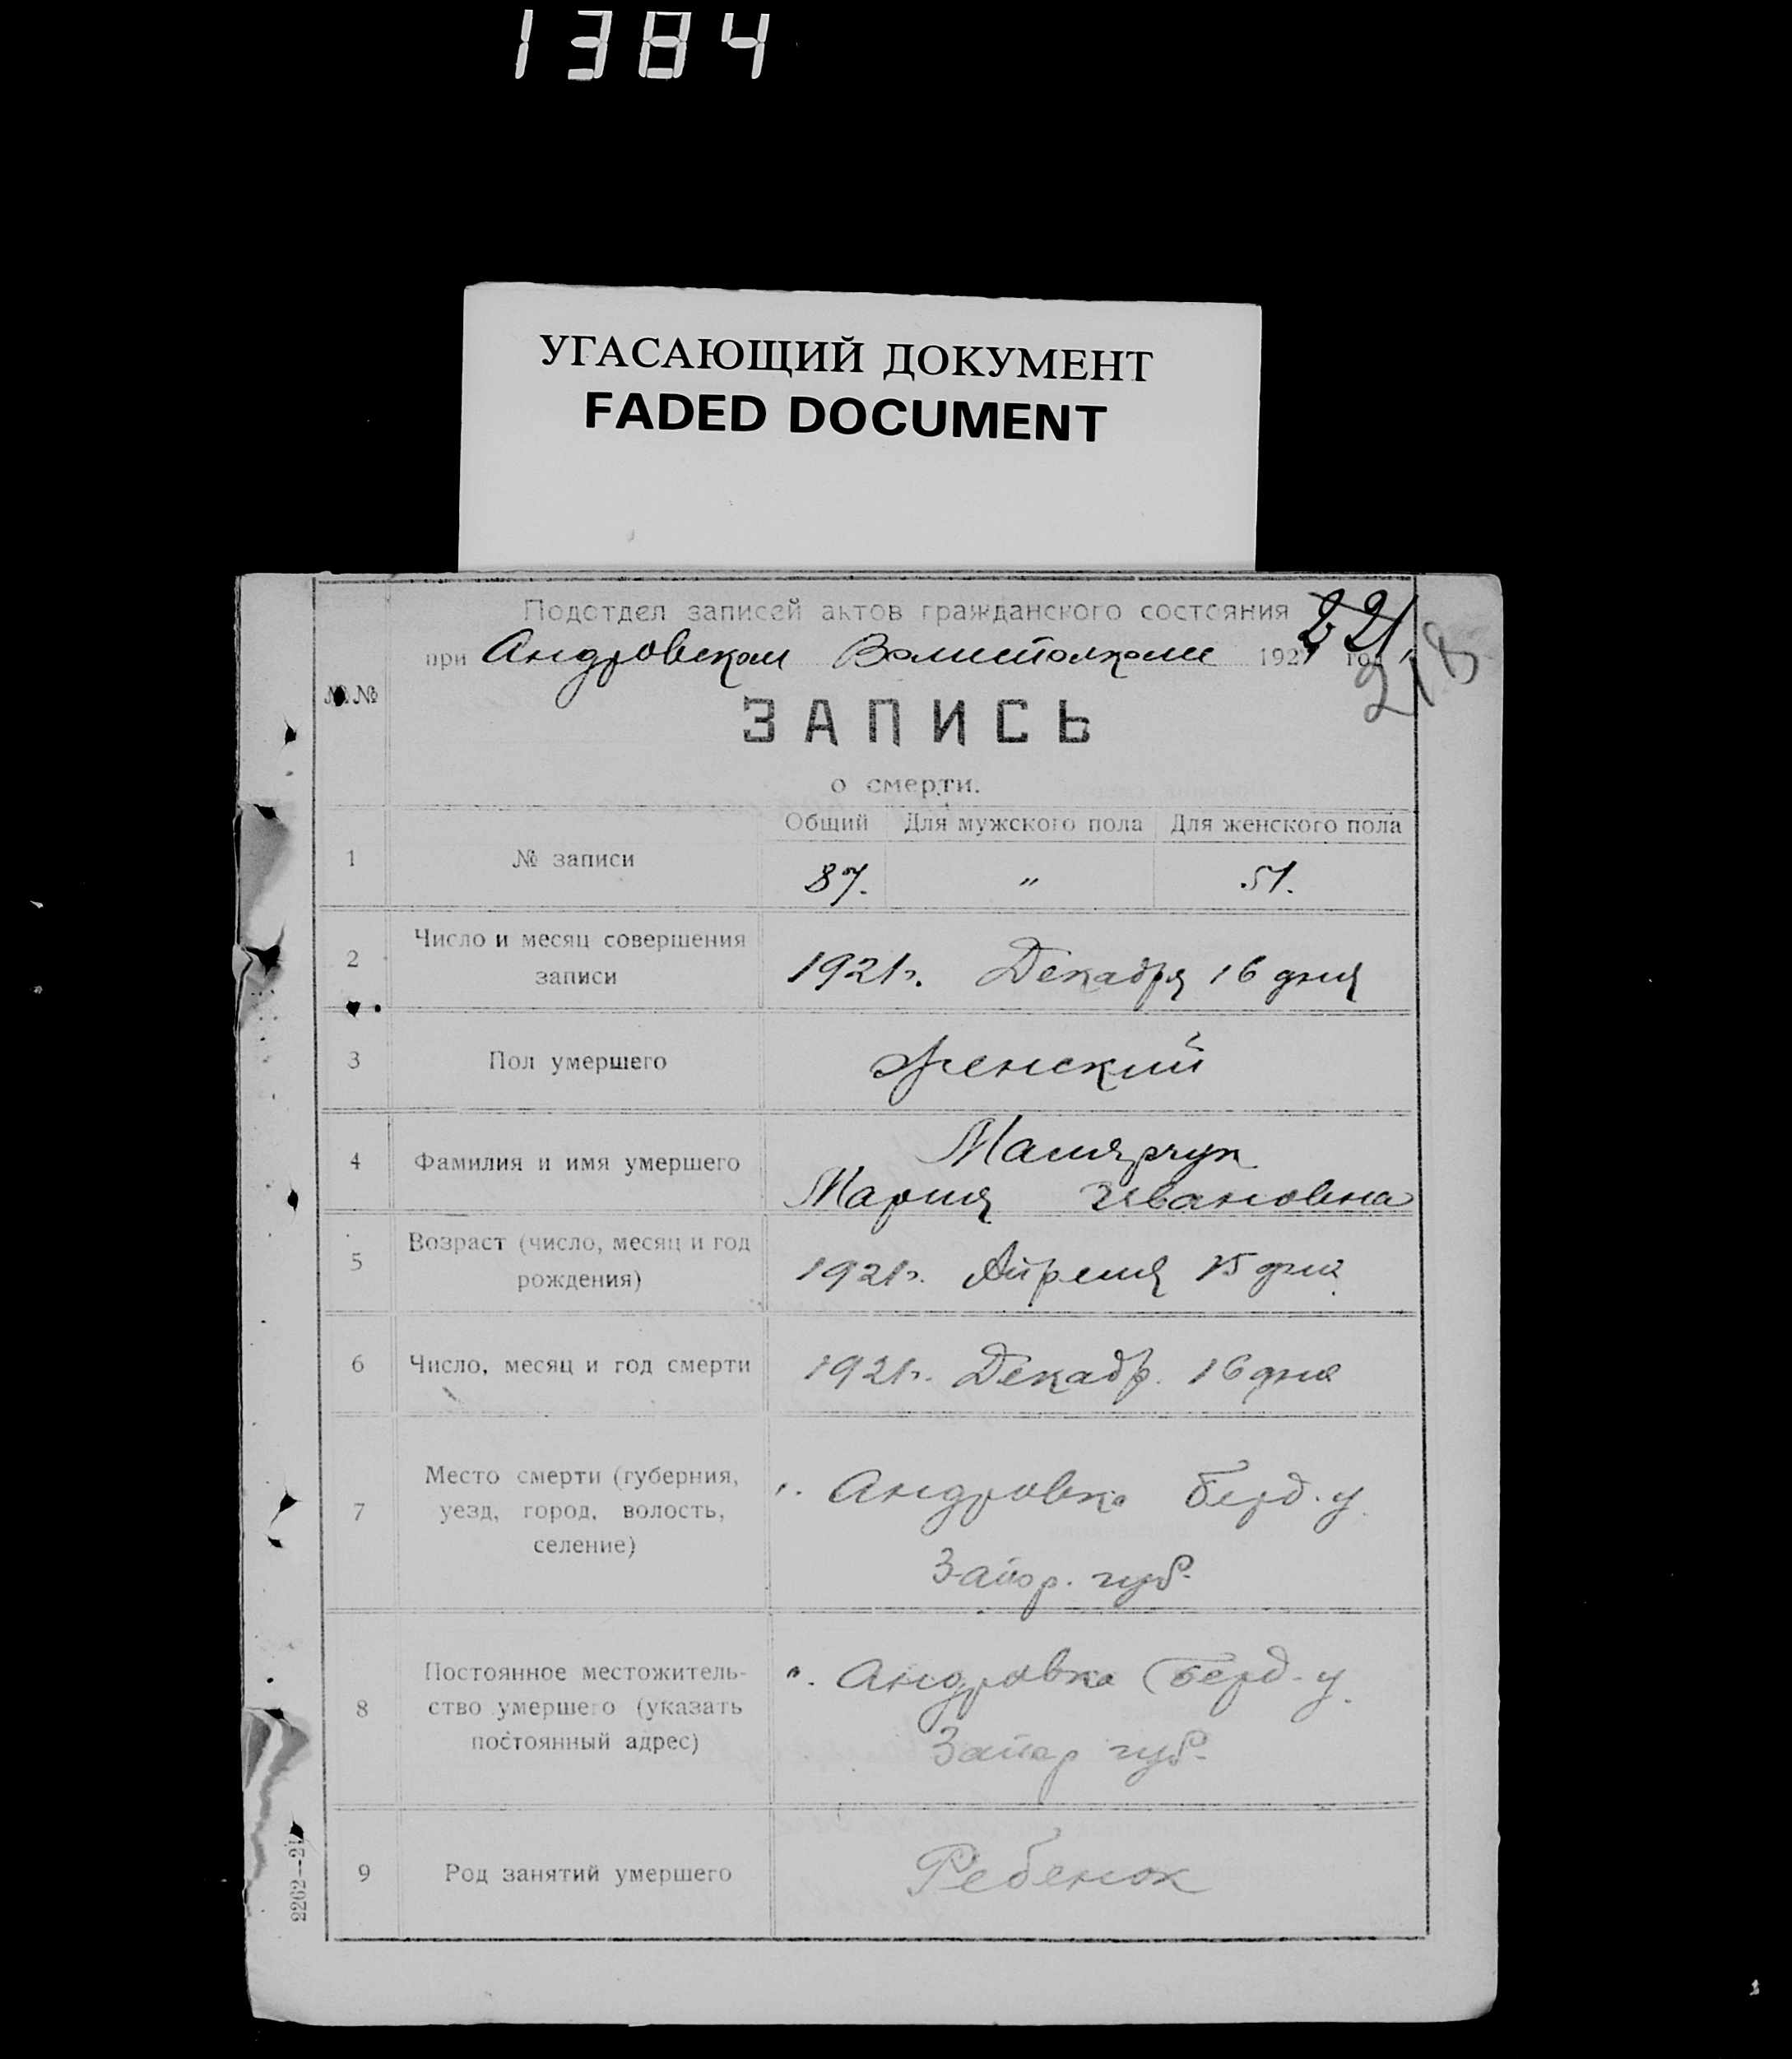 1384
УГАСАЮЩИЙ ДОКУМЕНТ
FADED DOCUMENT
Подотдел записей актов гражданского состояния
при Андровском Волисполкоме 1921 год
221
218
№№
ЗАПИСЬ
о смерти.
Общий Для мужского пола Для женского пола
1 № записи 87. " 51.
2 Число и месяц совершения записи 1921г. Декабря 16 дня
3 Пол умершего женский
4 Фамилия и имя умершего Малярчук
Мария Ивановна
5 Возраст (число, месяц и год рождения) 1921г. Апреля 15 дня
6 Число, месяц и год смерти 1921г. Декабр. 16 дня
7 Место смерти (губерния,
уезд, город, волость,
селение)
с. Андровка Берд. у.
Запор. губ.
8 Постоянное местожитель-
ство умершего (указать
постоянный адрес)
с. Андровка Берд. у.
Запор губ.
9 Род занятий умершего Ребенок
2262--21